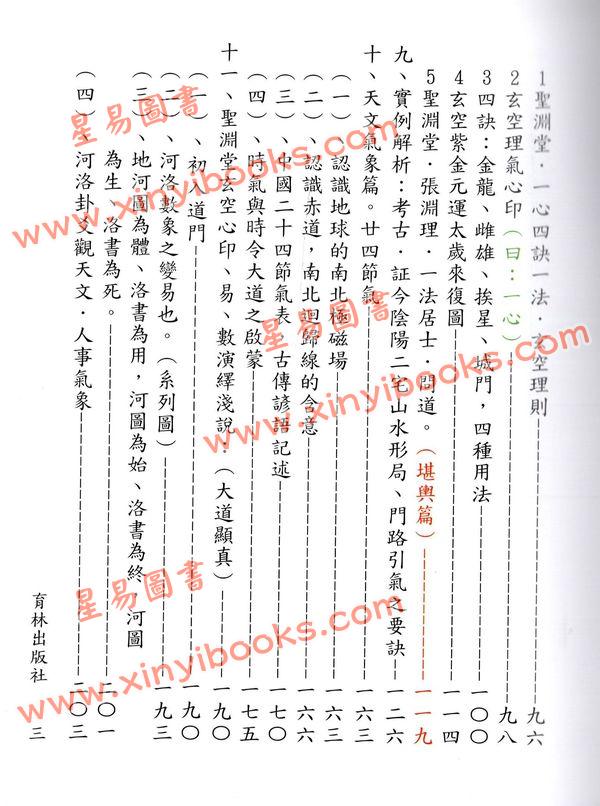 1聖淵堂．一心四訣一法．玄空理則------九六
2玄空理氣心印（曰：一心）------九八
3四訣：金龍、雌雄、挨星、城門，四種用法------一〇〇
4玄空紫金元運太歲來復圖------一一四
5聖淵堂．張淵理．一法居士．問道。（堪輿篇）------一一九
九、實例解析：考古．証今陰陽二宅山水形局、門路引氣之要訣------一二六
十、天文氣象篇。廿四節氣------一六三
（一）、認識地球的南北極磁場------一六三
（二）、認識赤道，南北迴歸線的含意------一六六
（三）、中國二十四節氣表、古傳諺語記述------一七〇
（四）、時氣與時令大道之啟蒙------一七五
十一、聖淵堂玄空心印、易、數演繹淺說：（大道顯真）------一九〇
（一）、初入道門------一九〇
（二）、河洛數象之變易也。（系列圖）------一九三
（三）、地河圖為體、洛書為用，河圖為始、洛書為終，河圖
為生、洛書為死。------二〇一
（四）、河洛卦爻觀天文．人事氣象------二〇三
育林出版社 三
星易圖書
www.xinyibooks.com
星易圖書
www.xinyibooks.com
星易圖書
www.xinyibooks.com
星易圖書
www.xinyibooks.com